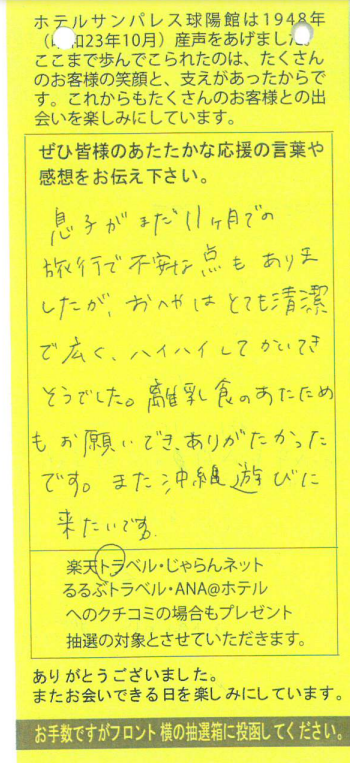 ホテルサンパレス球陽館は1948年
（昭和23年10月）産声をあげました。
ここまで歩んでこられたのは、たくさん
のお客様の笑顔と、支えがあったからで
す。これからもたくさんのお客様との出
会いを楽しみにしています。
ぜひ皆様のあたたかな応援の言葉や
感想をお伝え下さい。
息子がまだ11ヶ月での
旅行で不安な点もありま
したが、おへやはとても清潔
で広く、ハイハイしてかいてき
そうでした。離乳食のあたため
もお願いでき、ありがたかった
です。また沖縄遊びに
来たいです。
楽天トラベル・じゃらんネット
るるぶトラベル・ANA@ホテル
へのクチコミの場合もプレゼント
抽選の対象とさせていただきます。
ありがとうございました。
またお会いできる日を楽しみにしています。
お手数ですがフロント横の抽選箱に投函してください。